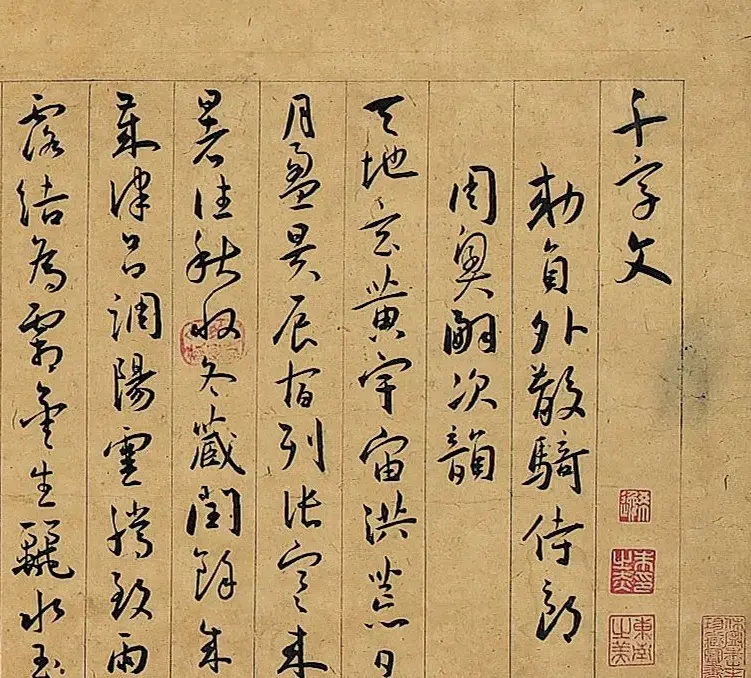 千字文
勅員外散騎侍郎
周興嗣次韻
天地玄黃宇宙洪荒日
月盈昃辰宿列張寒来
暑往秋収冬蔵閏餘成
歲律呂調陽雲騰致雨
露結為霜金生麗水玉
東南之美